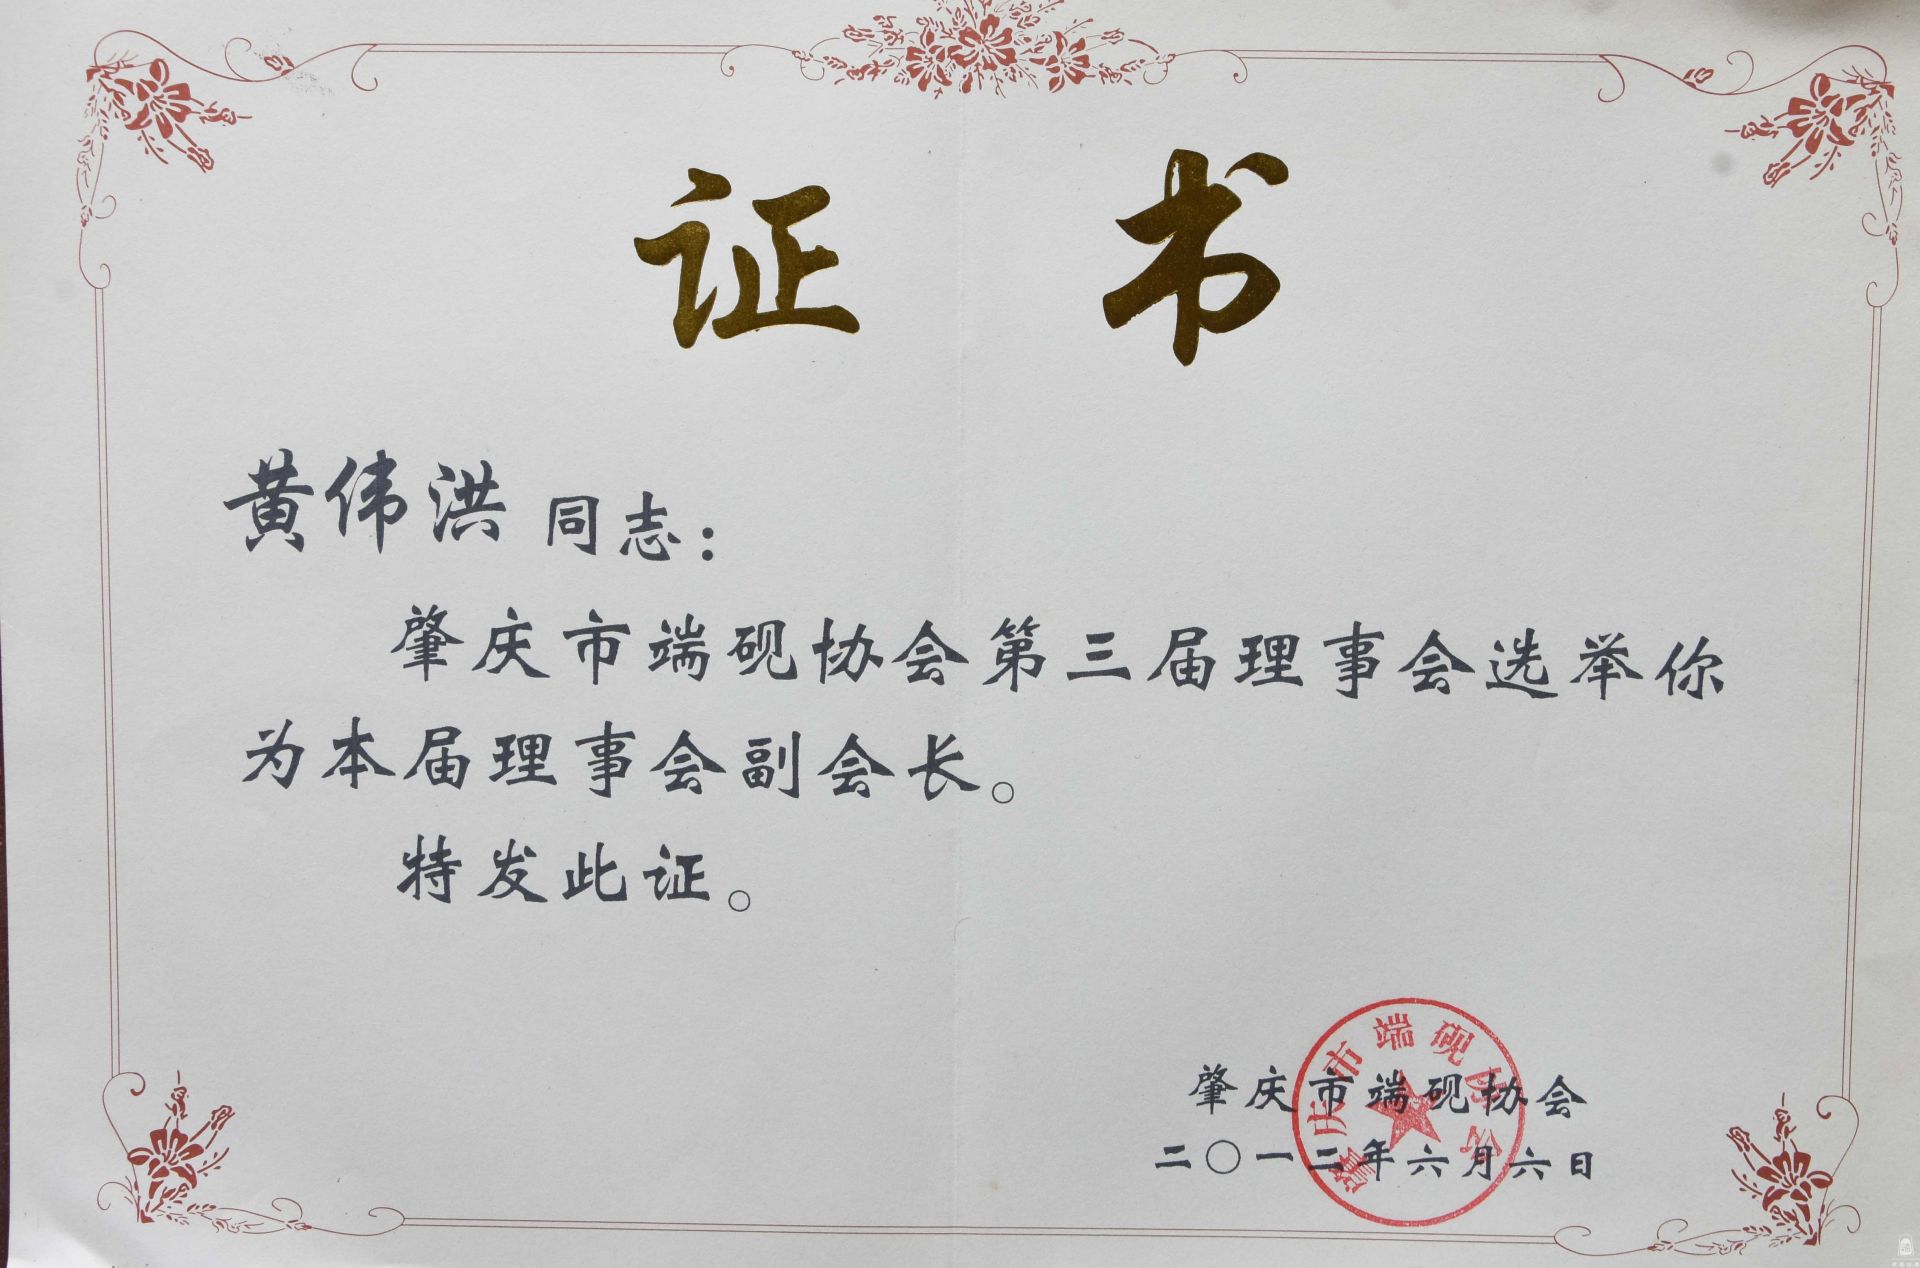 证书
黄伟洪同志：
肇庆市端砚协会第三届理事会选举你
为本届理事会副会长。
特发此证。
肇庆市端砚协会
二〇一三年六月六日
肇庆市端砚协会